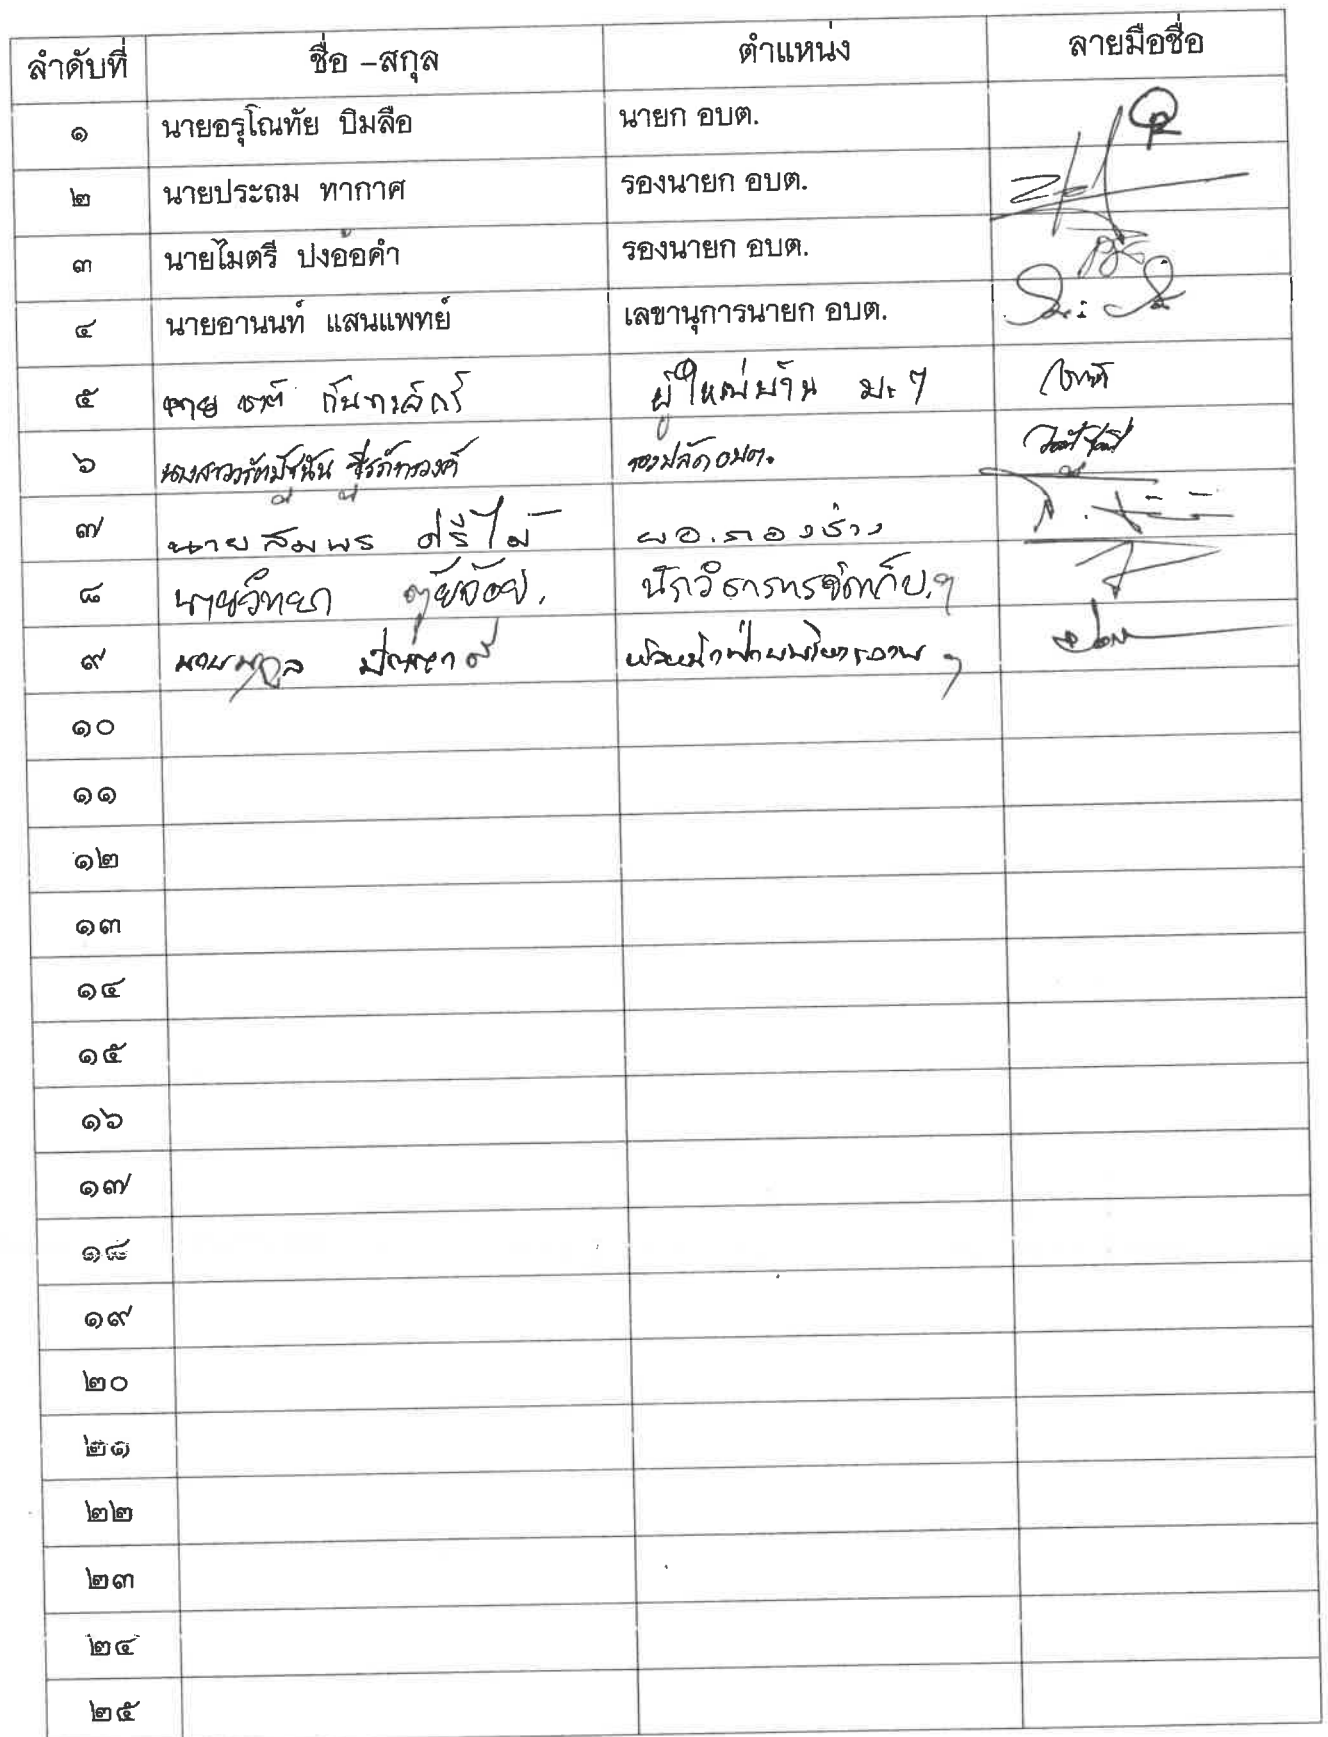 ลำดับที่ ชื่อ –สกุล ตำแหน่ง ลายมือชื่อ
๑ นายอรุโณทัย ปิมลือ นายก อบต.
๒ นายประถม ทากาศ รองนายก อบต.
๓ นายไมตรี ปงอ้อคำ รองนายก อบต.
๔ นายอานนท์ แสนแพทย์ เลขานุการนายก อบต.
๕ นาย ผู้ใหญ่บ้าน ม. 7
๖ นางสาว รองปลัด อบต.
๗ นายสมพร ศรีไม้ ผอ.กองช่าง
๘ นายวิทยา ตุ้ยจ้อย. นักวิชาการจัดเก็บฯ
๙ หัวหน้าฝ่ายบริหารงานฯ
๑๐
๑๑
๑๒
๑๓
๑๔
๑๕
๑๖
๑๗
๑๘
๑๙
๒๐
๒๑
๒๒
๒๓
๒๔
๒๕